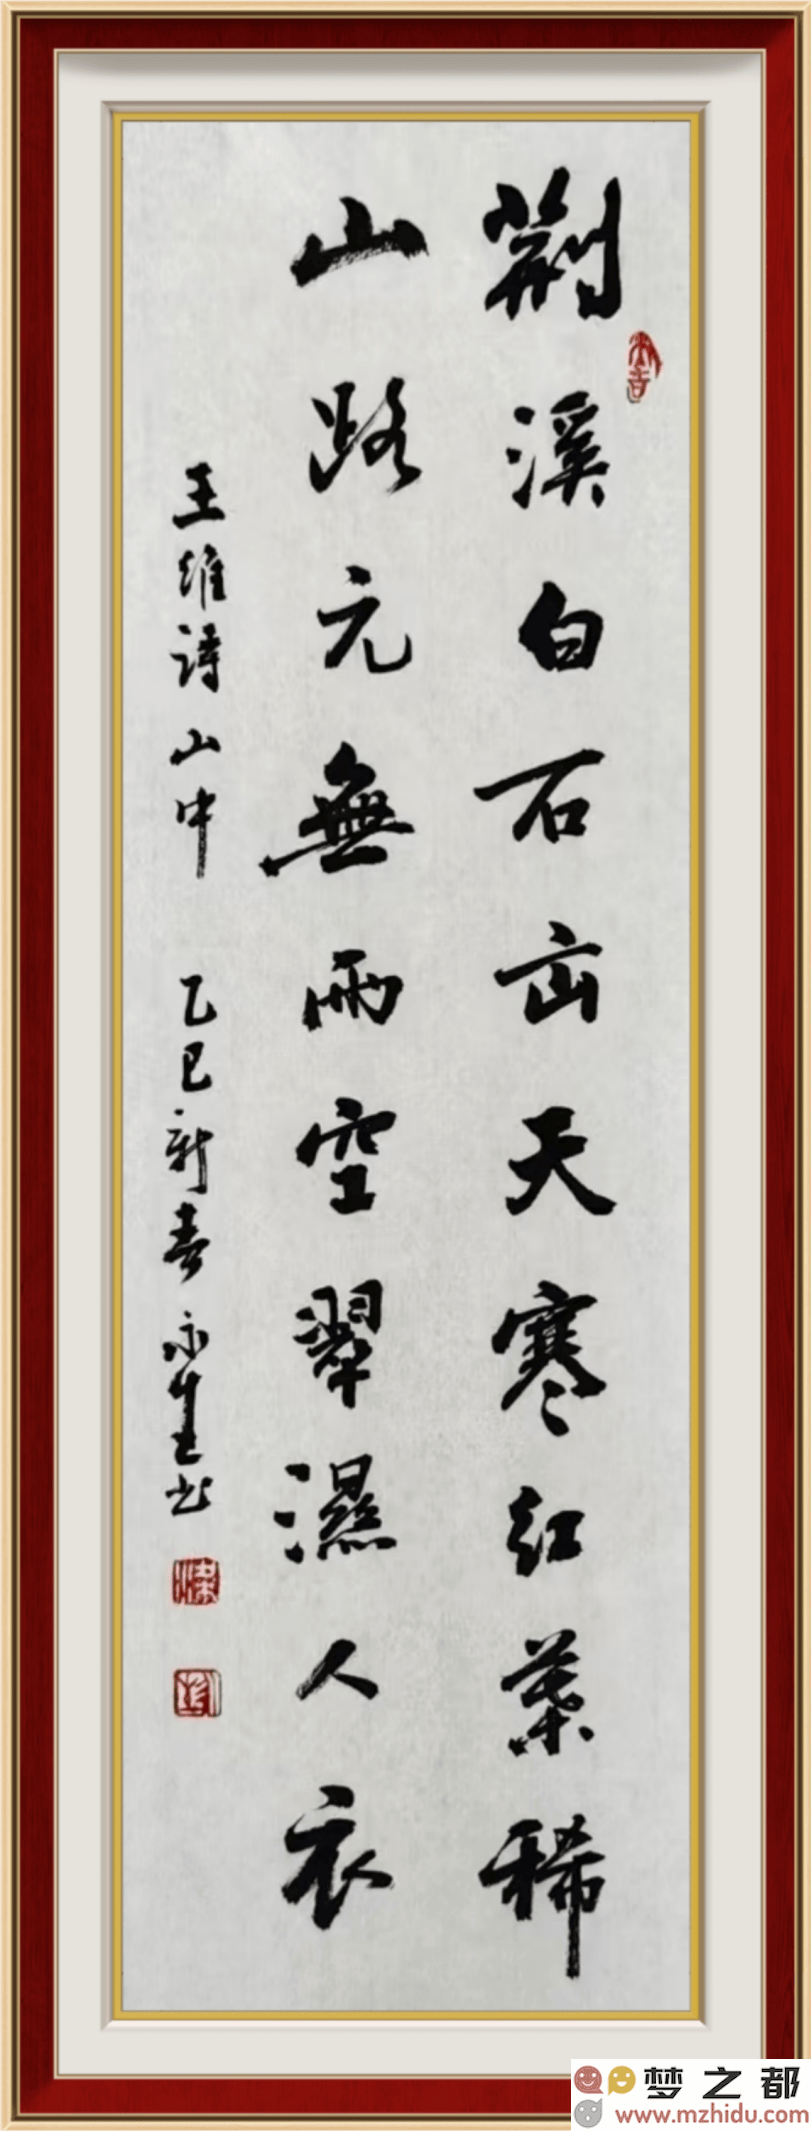 荆溪白石出天寒红葉稀
山路元無雨空翠濕人衣
王维诗山中 乙巳新春永生书
梦之都
www.mzhidu.com